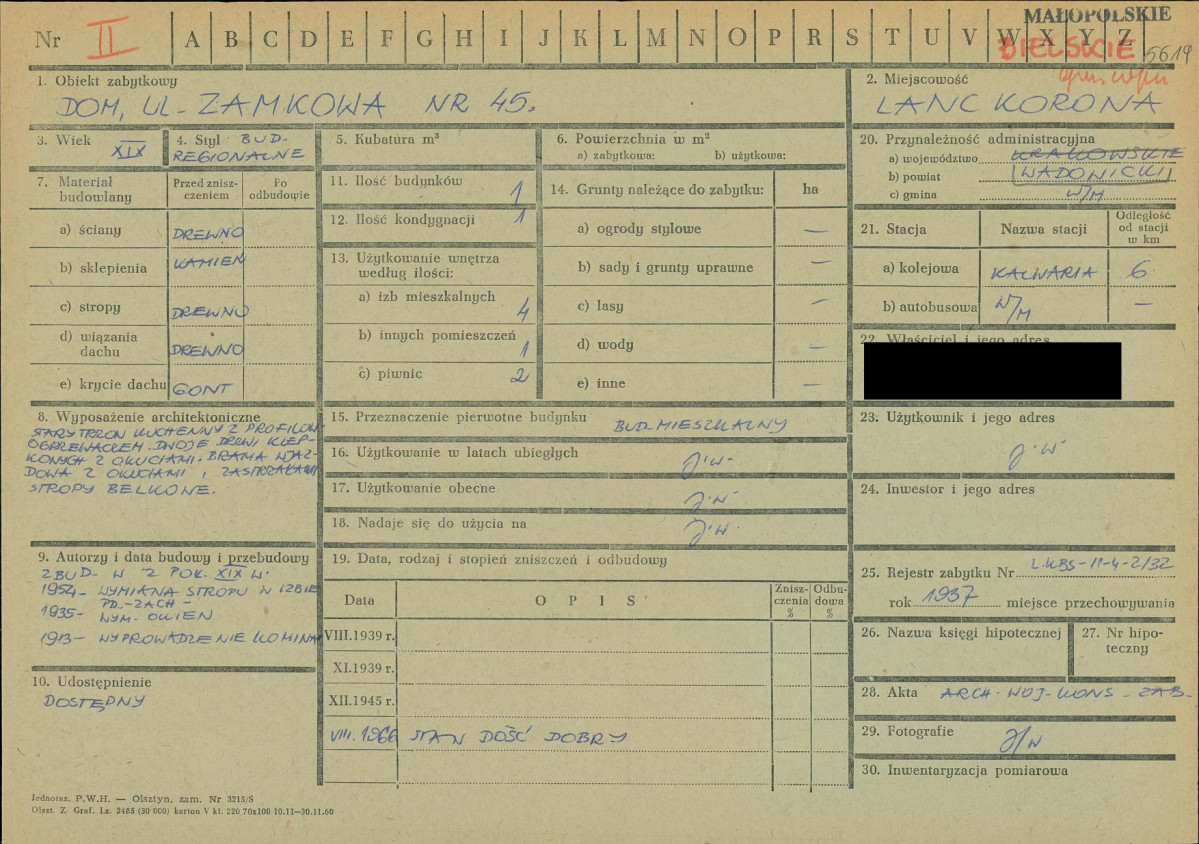 MAŁOPOLSKIE
Nr II A B C D E F G H I J K L M N O P R S T U V W X Y Z
BIELSKIE 5619
1. Obiekt zabytkowy
DOM, UL. ZAMKOWA NR 45.
2. Miejscowość
LANCKORONA
3. Wiek XIX
4. Styl BUD-
REGIONALNE
5. Kubatura m³
6. Powierzchnia w m²
a) zabytkowa: b) użytkowa:
7. Materiał budowlany
Przed zniszczeniem
Po odbudowie
a) ściany DREWNO
b) sklepienia KAMIEŃ
c) stropy DREWNO
d) wiązania dachu DREWNO
e) krycie dachu GONT
11. Ilość budynków 1
12. Ilość kondygnacji 1
13. Użytkowanie wnętrza
według ilości:
a) izb mieszkalnych 4
b) innych pomieszczeń 1
c) piwnic 2
14. Grunty należące do zabytku: ha
a) ogrody stylowe —
b) sady i grunty uprawne —
c) lasy —
d) wody —
e) inne —
20. Przynależność administracyjna
a) województwo KRAKOWSKIE
b) powiat WADOWICKI
c) gmina W/M
21. Stacja Nazwa stacji Odległość od stacji w km
a) kolejowa KALWARIA 6
b) autobusowa W/M —
22. Właściciel i jego adres
8. Wyposażenie architektoniczne
STARY TRZON KUCHENNY Z PROFILOW
OGRZEWACZEM. DWOJE DRZWI KLEP-
KOWYCH Z OKUCIAMI. BRAMA WJAZ-
DOWA Z OKUCIAMI I ZASTRZAŁAMI
STROPY BELKOWE.
15. Przeznaczenie pierwotne budynku BUD. MIESZKALNY
16. Użytkowanie w latach ubiegłych J.W.
17. Użytkowanie obecne J.W.
18. Nadaje się do użycia na J.W.
23. Użytkownik i jego adres
J.W.
24. Inwestor i jego adres
9. Autorzy i data budowy i przebudowy
ZBUD. W 2 POŁ. XIX W.
1954 - WYMIANA STROPU W IZBIE
PD.-ZACH -
1935 - WYM. OKIEN
1913 - WYPROWADZENIE KOMINA
10. Udostępnienie
DOSTĘPNY
19. Data, rodzaj i stopień zniszczeń i odbudowy
Data OPIS Zniszczenia % Odbudowa %
VIII.1939 r.
XI.1939 r.
XII.1945 r.
VIII.1966 STAN DOŚĆ DOBRY
25. Rejestr zabytku Nr L.KBS-II-4-2/32
rok 1937 miejsce przechowywania
26. Nazwa księgi hipotecznej
27. Nr hipoteczny
28. Akta ARCH. WOJ. KONS. ZAB.
29. Fotografie J/W
30. Inwentaryzacja pomiarowa
Jednoraz. P.W.H. — Olsztyn, zam. Nr 3213/S
Olszt. Z. Graf. Lz. 2485 (30 000) karton V kl. 220 70x100 10.11—30.11.60